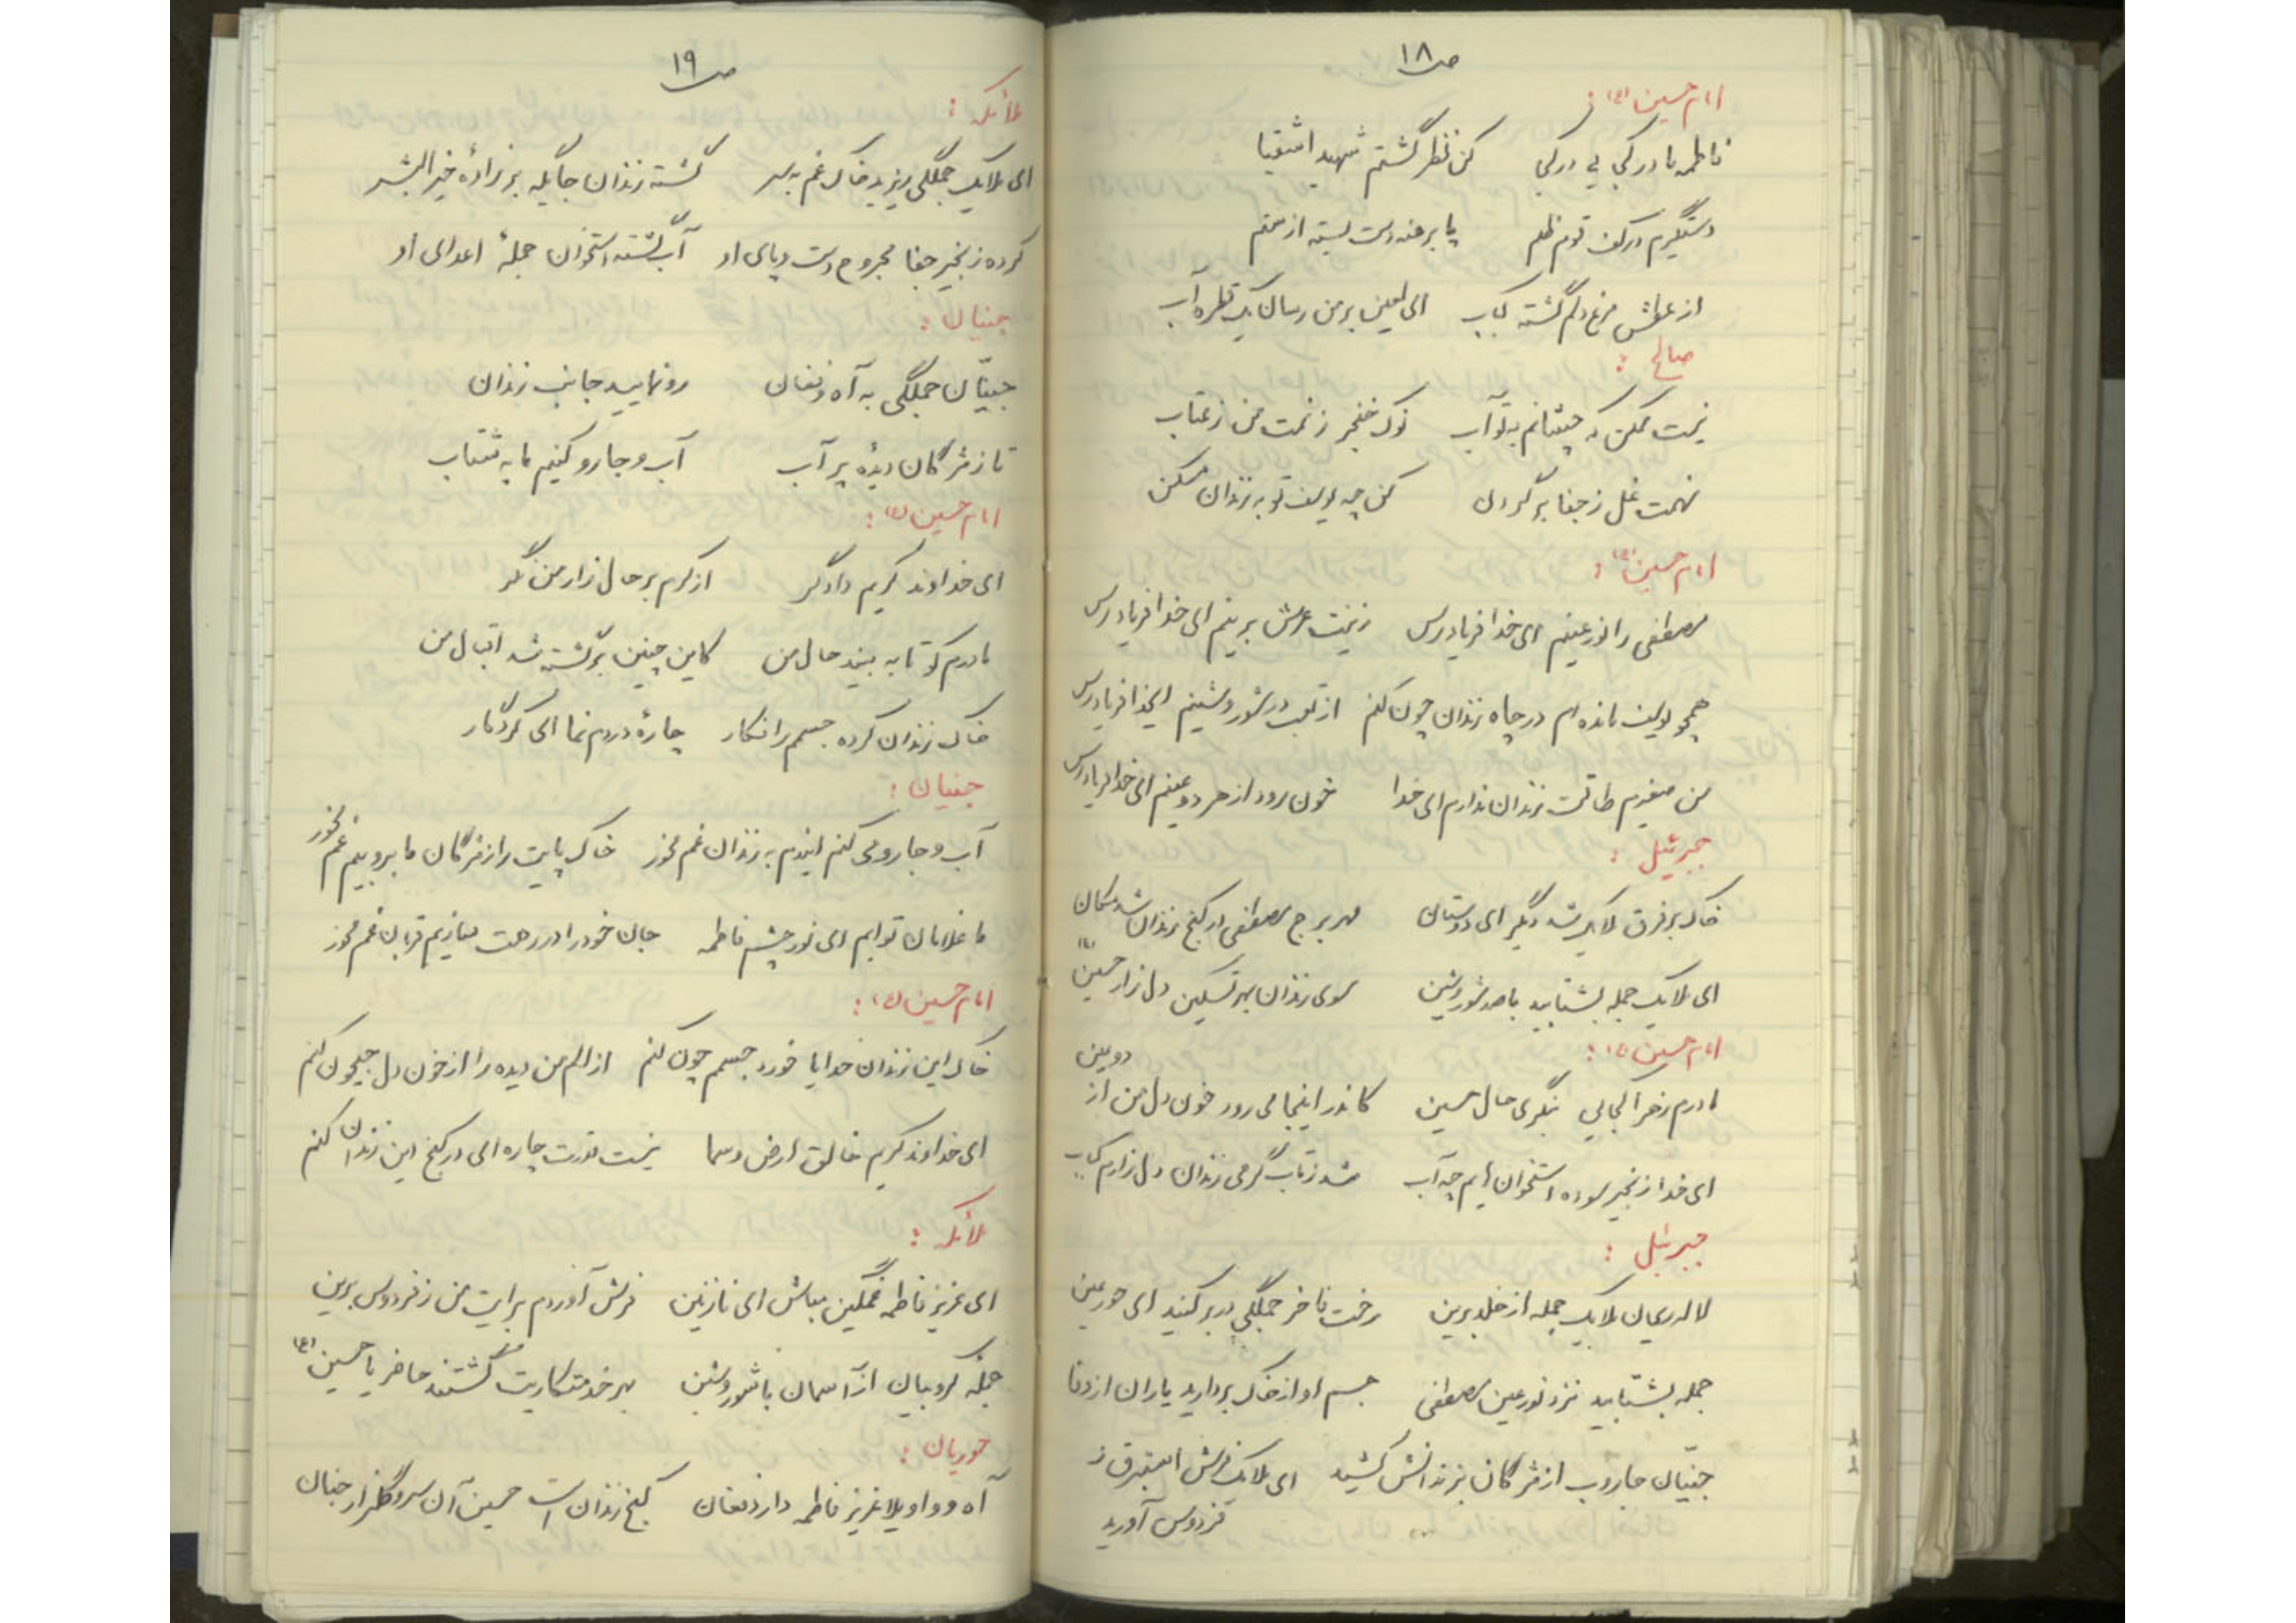 ص ۱۸
امام حسین (ع) :
فاطمه مادر کجایی در کجایی کن نظر گشتم شهید اشقیا
دستگیرم در کف قوم ظلم پا برهنه دست بسته از ستم
از عطش مرغ دلم گشته کباب ای لعین بر من رسان یک قطره آب
صالح :
نیست ممکن که چشانم به تو آب نوک خنجر زنمت من ز عتاب
نهمت غل ز جفا بر گردن کن چه یوسف تو به زندان مسکن
امام حسین (ع) :
مصطفی را نور عینم ای خدا فریادرس زینت عرش برینم ای خدا فریادرس
همچو یوسف مانده ام در چاه زندان چون کنم از تعب در شور و شینم ایخدا فریادرس
من صغیرم طاقت زندان ندارم ای خدا خون رود از هر دو عینم ای خدا فریادرس
جبرئیل :
خاک بر فرق ملایک شد دگر ای دوستان مهر برج مصطفی در کنج زندان شد مکان
ای ملایک جمله بشتابید با صد شور و شین سوی زندان بهر تسکین دل زار حسین (ع)
امام حسین (ع) :
مادرم زهرا کجایی بنگری حال حسین کاندر اینجا می رود خون دل من از دو عین
ای خدا زنجیر سوده استخوان هایم چه آب شد ز تاب گرمی زندان دل زارم کباب
جبرئیل :
لاله ریحان ملایک جمله از خلد برین رخت فاخر جملگی در بر کنید ای حور عین
جمله بشتابید نزد نور عین مصطفی جسم او از خاک بردارید یاران از وفا
جنیّان جاروب از مژگان بزندانش کشید ای ملایک فرش استبرق ز
فردوس آورید
ص ۱۹
ملائکه :
ای ملایک جملگی ریزید خاک غم به سر گشته زندان جایگه بر زادهٔ خیر البشر
کرده زنجیر جفا مجروح دست و پای او آب گشته استخوان جملهٔ اعدای او
جنیان :
جنیّان جملگی به آه و فغان رو نمایید جانب زندان
تا ز مژگان دیدهٔ پر آب آب و جارو کنیم ما به شتاب
امام حسین (ع) :
ای خداوند کریم دادگر از کرم بر حال زار من نگر
مادرم کو تا به بیند حال من کاین چنین برگشته شد اقبال من
خاک زندان کرده جسمم را فکار چارهٔ دردم نما ای کردگار
جنیان :
آب و جارو می کنم ایندم به زندان غم مخور خاک پایت را ز مژگان ما بروبیم غم مخور
ما غلامان توایم ای نور چشم فاطمه جان خود را در رهت سازیم قربان غم مخور
امام حسین (ع) :
خاک این زندان خدایا خورد جسمم چون کنم از الم من دیده را از خون دل جیحون کنم
ای خداوند کریم خالق ارض و سما نیست قدرت چاره ای در کنج این زندان کنم
ملائکه :
ای عزیز فاطمه غمگین مباش ای نازنین فرش آوردم برایت من ز فردوس برین
جمله کروبیان از آسمان با شور و شین بهر خدمتکاریت گشتند حاضر یا حسین (ع)
حوریان :
آه و واویلا عزیز فاطمه دارد فغان کنج زندان است حسین آن سرو گلزار جنان